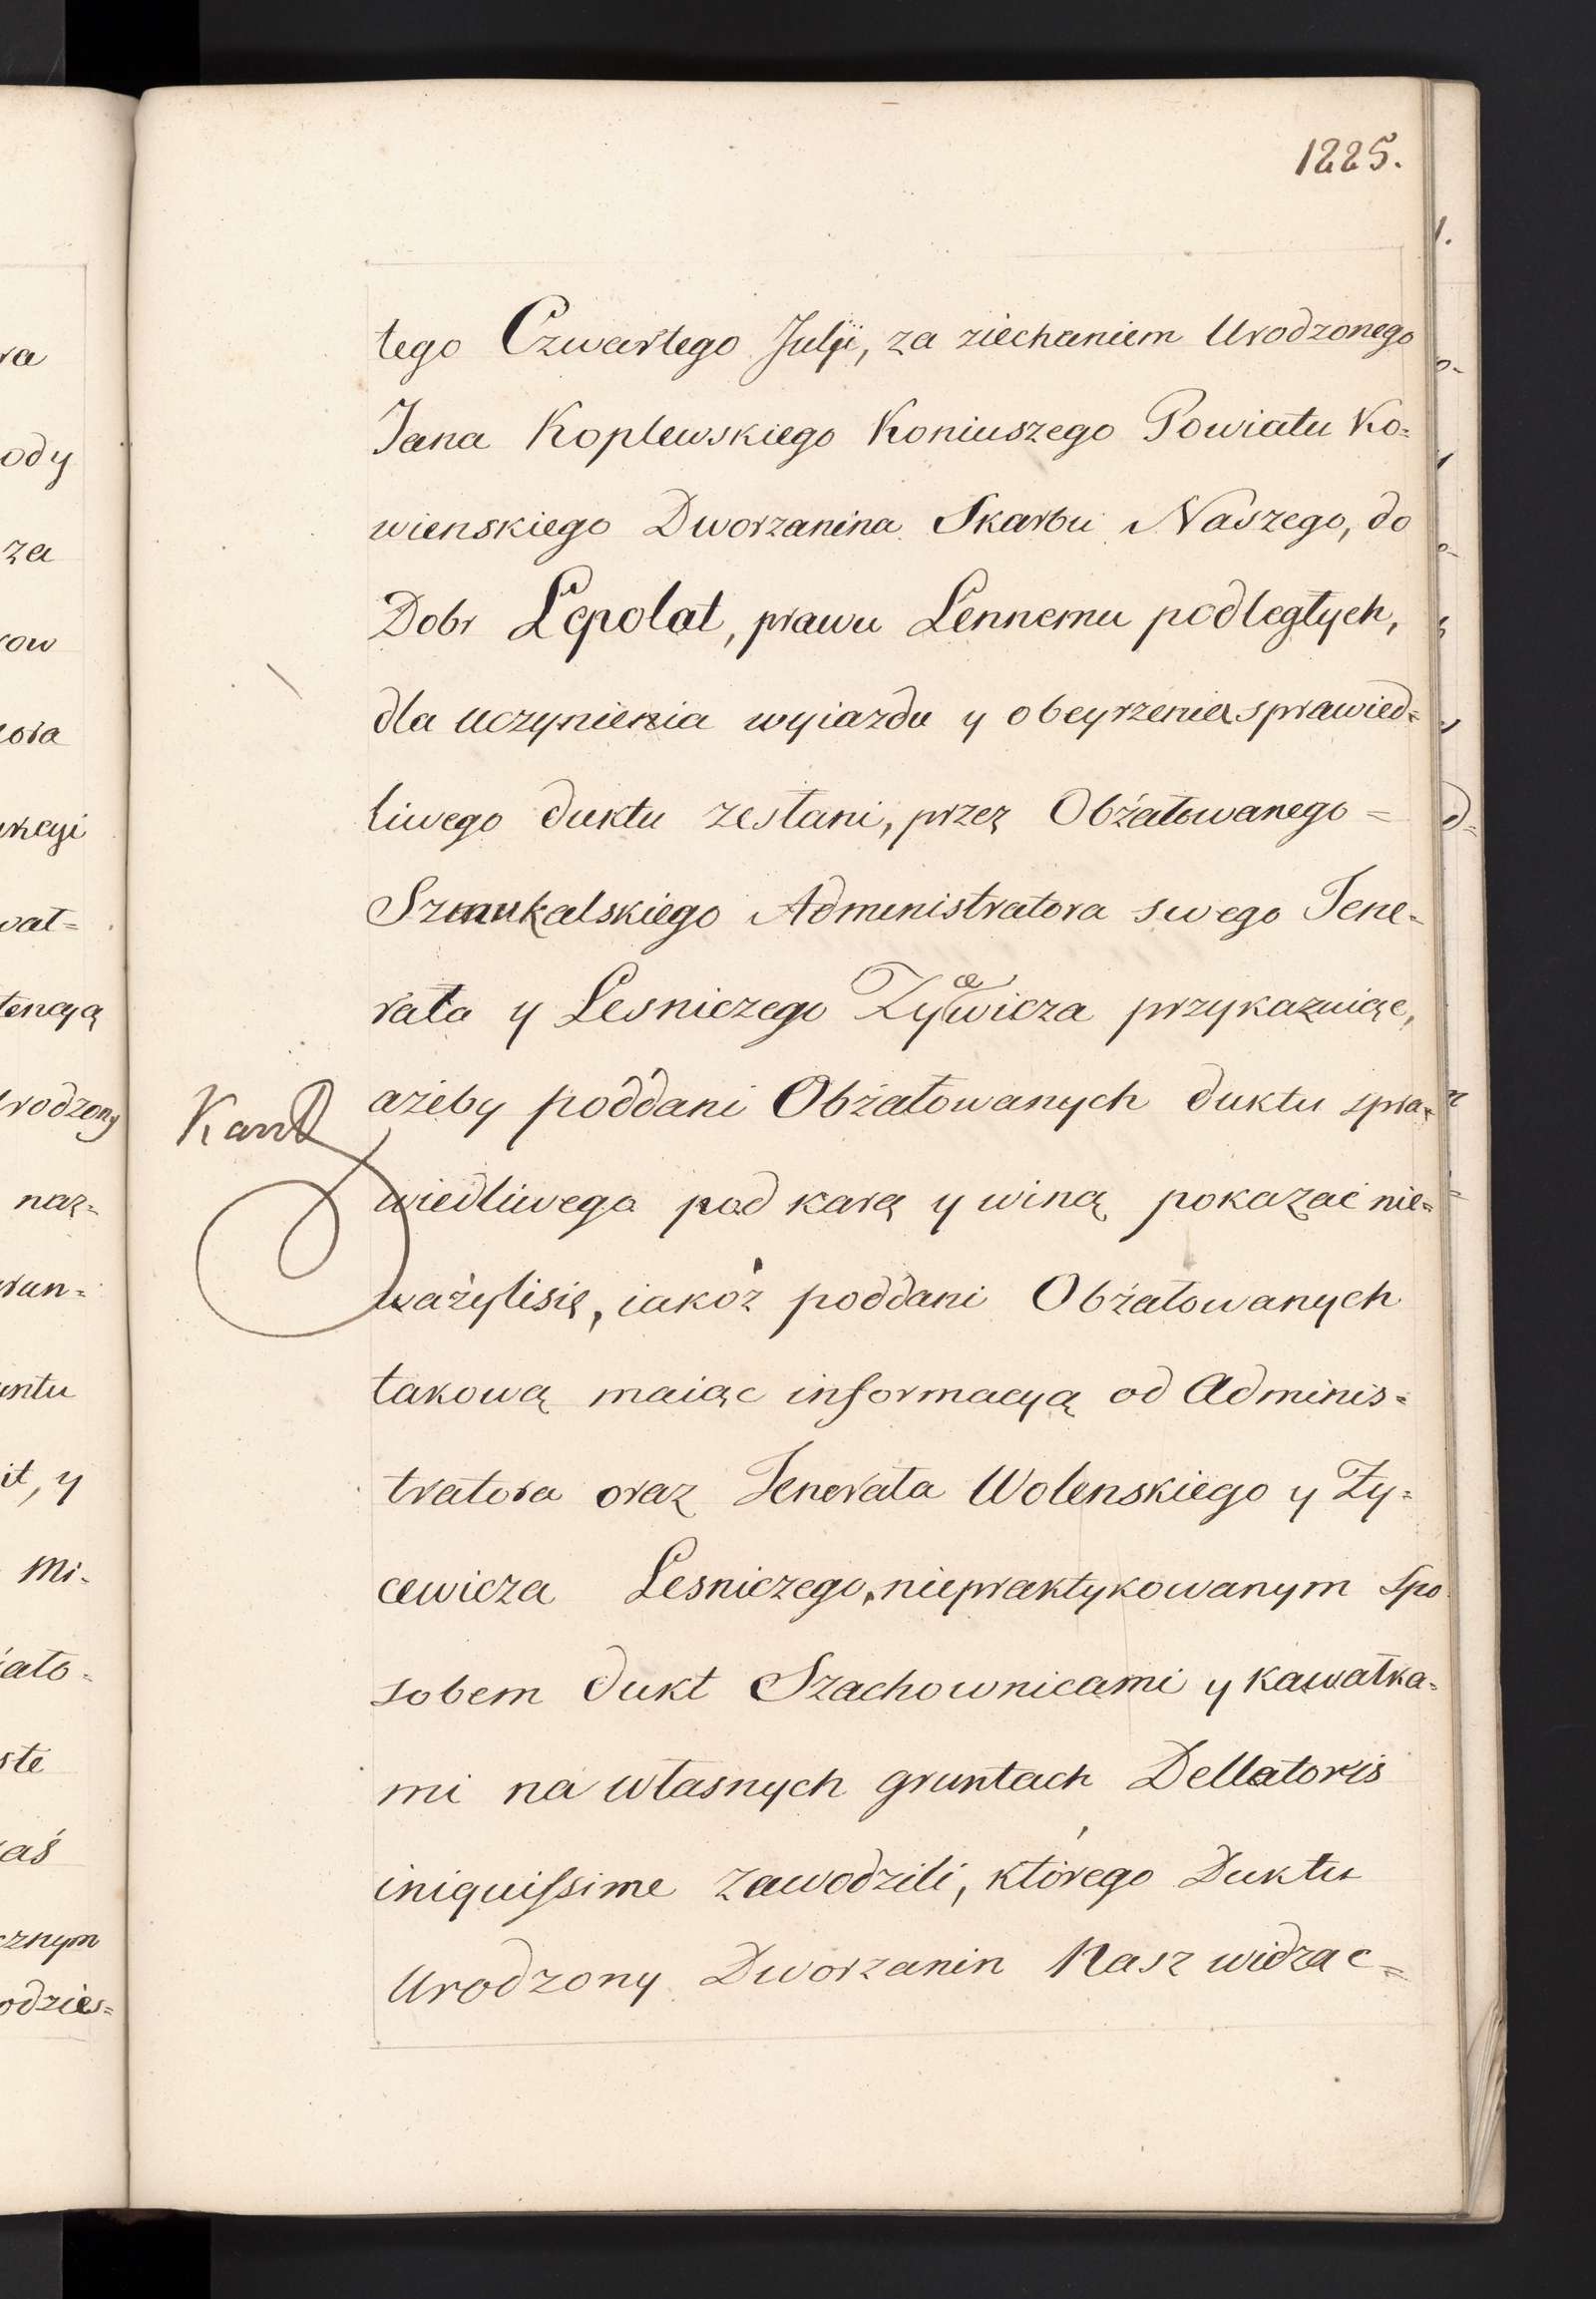 1225.
tego Czwartego Julji, za ziechaniem Urodzonego
Jana Koplewskiego Koniuszego Powiatu Ko=
wienskiego Dworzanina Skarbu Naszego, do
Dobr Lepolat, prawu Lennemu podległych,
dla uczynienia wyiazdu y obeyrzenia sprawied=
liwego duktu zesłani, przez Obżałowanego =
Szmukalskiego Administratora swego Jene=
rała y Lesniczego Zycewicza przykazuiąc,
ażeby poddani Obżałowanych duktu spra=
wiedliwego pod karą y winą pokazać nie=
ważylisię, iakoż poddani Obżałowanych
takową maiąc informacyą od Adminis=
tratora oraz Jenerała Wolenskiego y Zy=
cewicza Lesniczego, niepraktykowanym spo
sobem dukt Szachownicami y kawałka=
mi na własnych gruntach Dellatoris
iniquissime zawodzili, którego Duktu
Urodzony Dworzanin Nasz widząc =
ra
ody
za
row
wał=
tencyą
rodzony
naz=
untu
it, y
Mi=
ste
aś
cznym
odzies=